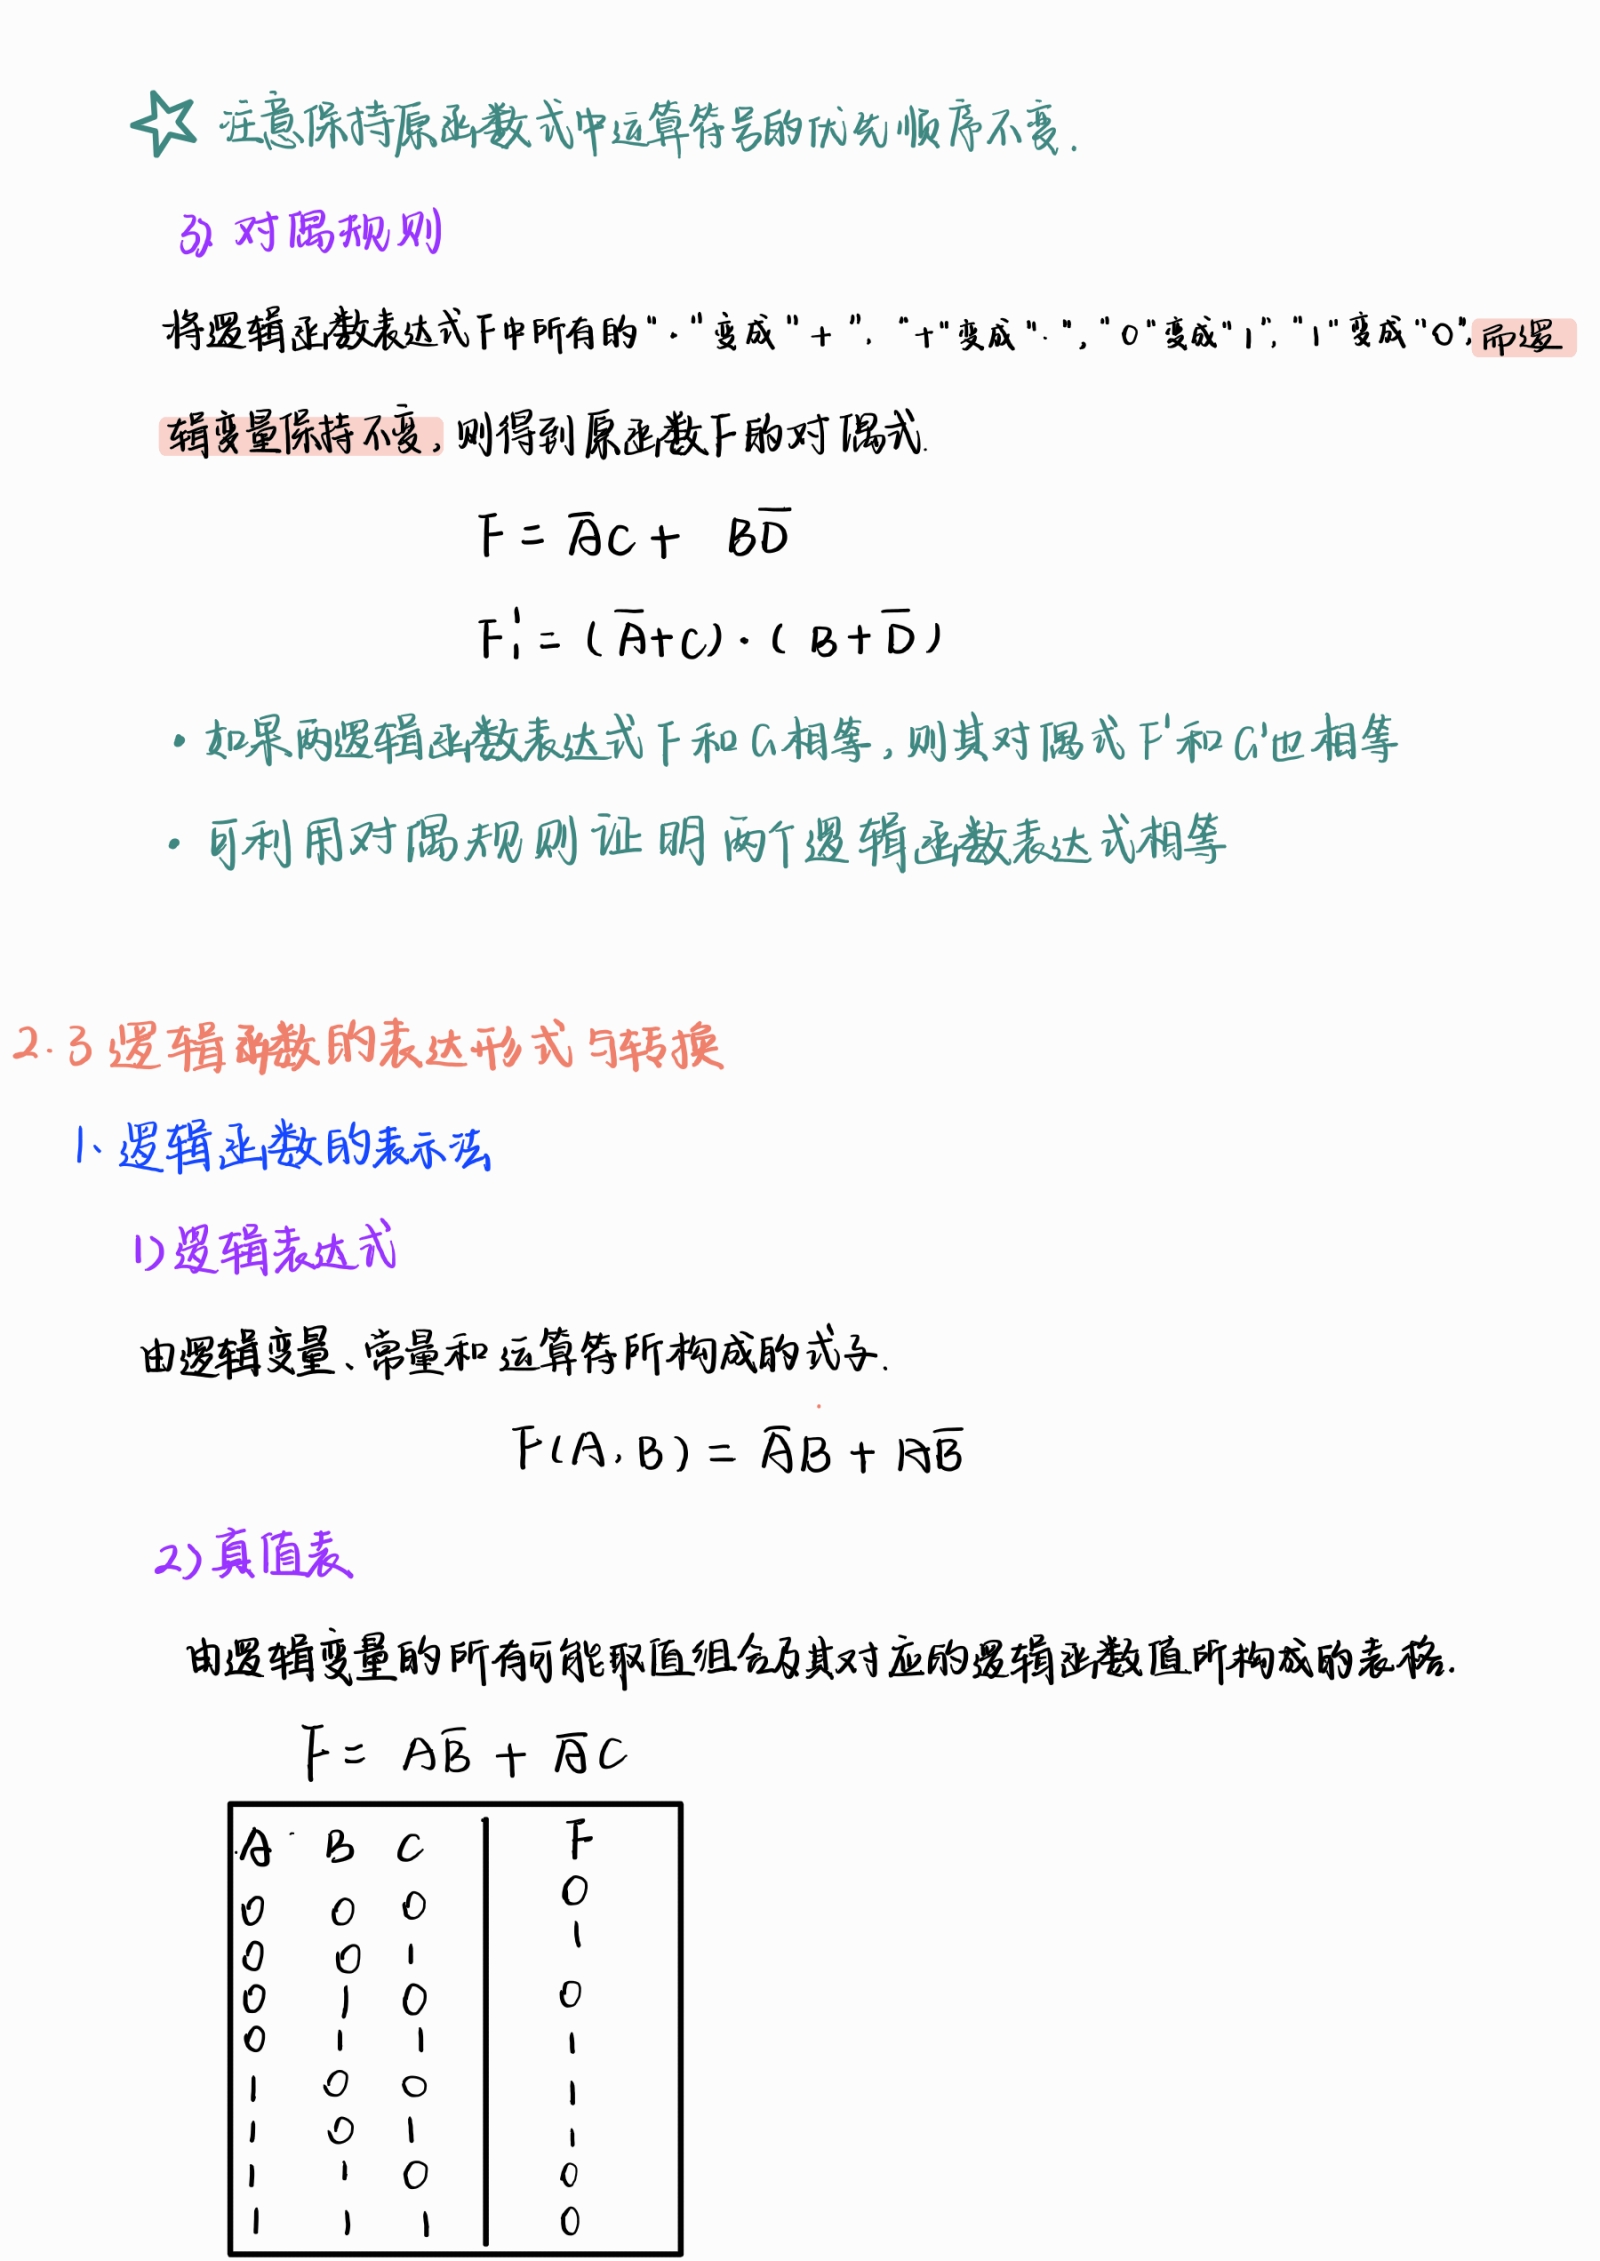 ☆ 注意保持原函数式中运算符号的优先顺序不变.
3). 对偶规则
将逻辑函数表达式F中所有的"·"变成"+", "+"变成"·", "0"变成"1", "1"变成"0", 而逻
辑变量保持不变, 则得到原函数F的对偶式.
F = A̅C + BD̅
F₁' = (A̅+C)·(B+D̅)
· 如果两逻辑函数表达式F和G相等, 则其对偶式F'和G'也相等
· 可利用对偶规则证明两个逻辑函数表达式相等
2.3 逻辑函数的表达形式与转换
1、逻辑函数的表示法
1) 逻辑表达式
由逻辑变量、常量和运算符所构成的式子.
F(A, B) = A̅B + AB̅
2) 真值表
由逻辑变量的所有可能取值组合及其对应的逻辑函数值所构成的表格.
F = AB̅ + A̅C
A B C F
0 0 0 0
0 0 1 1
0 1 0 0
0 1 1 1
1 0 0 1
1 0 1 1
1 1 0 0
1 1 1 0